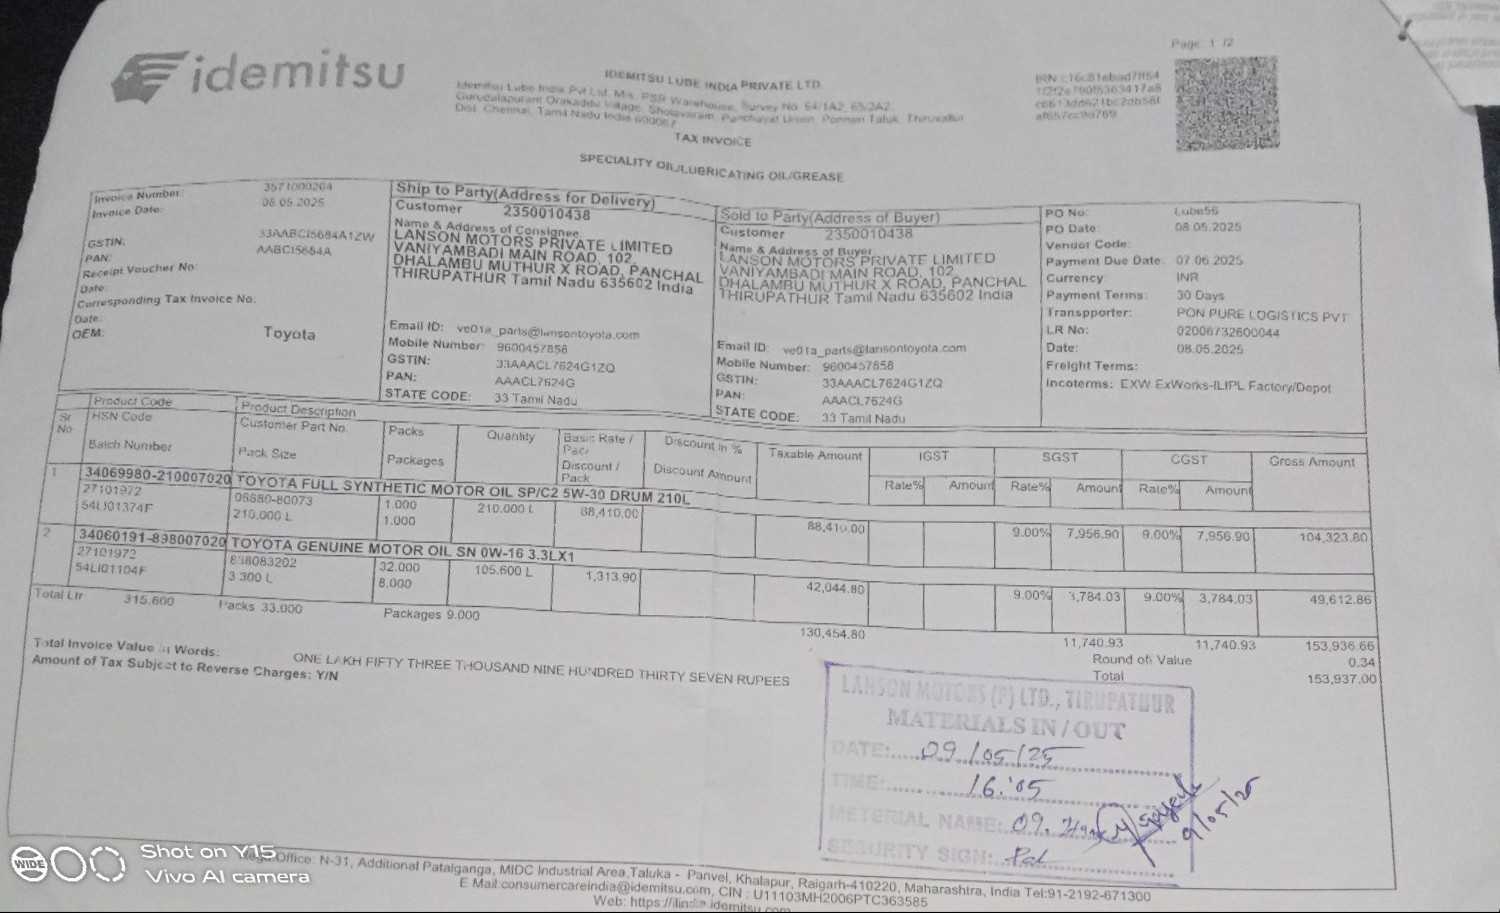 Page: 1 /2
idemitsu
IDEMITSU LUBE INDIA PRIVATE LTD.
Idemitsu Lube India Pvt Ltd. M/s. PSR Warehouse, Survey No. 64/1A2, 65/2A2,
Orakaddu Village, Sholavaram, Panchayat Union, Ponneri Taluk, Thiruvallur
Dist. Chennai, Tamil Nadu India 600067
TAX INVOICE
SPECIALITY OIL/LUBRICATING OIL/GREASE
Invoice Number: 3571000204
Invoice Date: 08.05.2025
GSTIN: 33AABCI5684A1ZW
PAN: AABCI5684A
Receipt Voucher No:
Date:
Corresponding Tax Invoice No.
Date:
OEM: Toyota
Ship to Party(Address for Delivery)
Customer 2350010438
Name & Address of Consignee
LANSON MOTORS PRIVATE LIMITED
VANIYAMBADI MAIN ROAD, 102,
DHALAMBU MUTHUR X ROAD, PANCHAL
THIRUPATHUR Tamil Nadu 635602 India
Email ID: ve01a_parts@lansontoyota.com
Mobile Number: 9600457858
GSTIN: 33AAACL7624G1ZQ
PAN: AAACL7624G
STATE CODE: 33 Tamil Nadu
Sold to Party(Address of Buyer)
Customer 2350010438
Name & Address of Buyer
LANSON MOTORS PRIVATE LIMITED
VANIYAMBADI MAIN ROAD, 102,
DHALAMBU MUTHUR X ROAD, PANCHAL
THIRUPATHUR Tamil Nadu 635602 India
Email ID: ve01a_parts@lansontoyota.com
Mobile Number: 9600457858
GSTIN: 33AAACL7624G1ZQ
PAN: AAACL7624G
STATE CODE: 33 Tamil Nadu
PO No: Lube56
PO Date: 08.05.2025
Vendor Code:
Payment Due Date: 07.06.2025
Currency: INR
Payment Terms: 30 Days
Transpporter: PON PURE LOGISTICS PVT
LR No: 02006732600044
Date: 08.05.2025
Freight Terms:
Incoterms: EXW ExWorks-ILIPL Factory/Depot
Sr No Product Code HSN Code Batch Number
Product Description Customer Part No. Pack Size
Packs Packages
Quantity
Basic Rate / Pack Discount / Pack
Discount in % Discount Amount
Taxable Amount
IGST Rate% Amount
SGST Rate% Amount
CGST Rate% Amount
Gross Amount
1 34069980-210007020 TOYOTA FULL SYNTHETIC MOTOR OIL SP/C2 5W-30 DRUM 210L
27101972 06880-80073 1.000 210.000 L 88,410.00 88,410.00 9.00% 7,956.90 9.00% 7,956.90 104,323.80
54LI01374F 210.000 L 1.000
2 34060191-898007020 TOYOTA GENUINE MOTOR OIL SN 0W-16 3.3LX1
27101972 898083202 32.000 105.600 L 1,313.90 42,044.80 9.00% 3,784.03 9.00% 3,784.03 49,612.86
54LI01104F 3.300 L 8.000
Total Ltr 315.600 Packs 33.000 Packages 9.000
130,454.80 11,740.93 11,740.93 153,936.66
Round off Value 0.34
Total 153,937.00
Total Invoice Value in Words: ONE LAKH FIFTY THREE THOUSAND NINE HUNDRED THIRTY SEVEN RUPEES
Amount of Tax Subject to Reverse Charges: Y/N
LANSON MOTORS (P) LTD., TIRUPATHUR
MATERIALS IN / OUT
DATE: 09/05/25
TIME: 16:05
METERIAL NAME: 09.
SECURITY SIGN:
9/05/25
Office: N-31, Additional Patalganga, MIDC Industrial Area,Taluka - Panvel, Khalapur, Raigarh-410220, Maharashtra, India Tel:91-2192-671300
E Mail:consumercareindia@idemitsu.com, CIN : U11103MH2006PTC363585
Web: https://ilindia.idemitsu.com
WIDE
Shot on Y15
Vivo AI camera